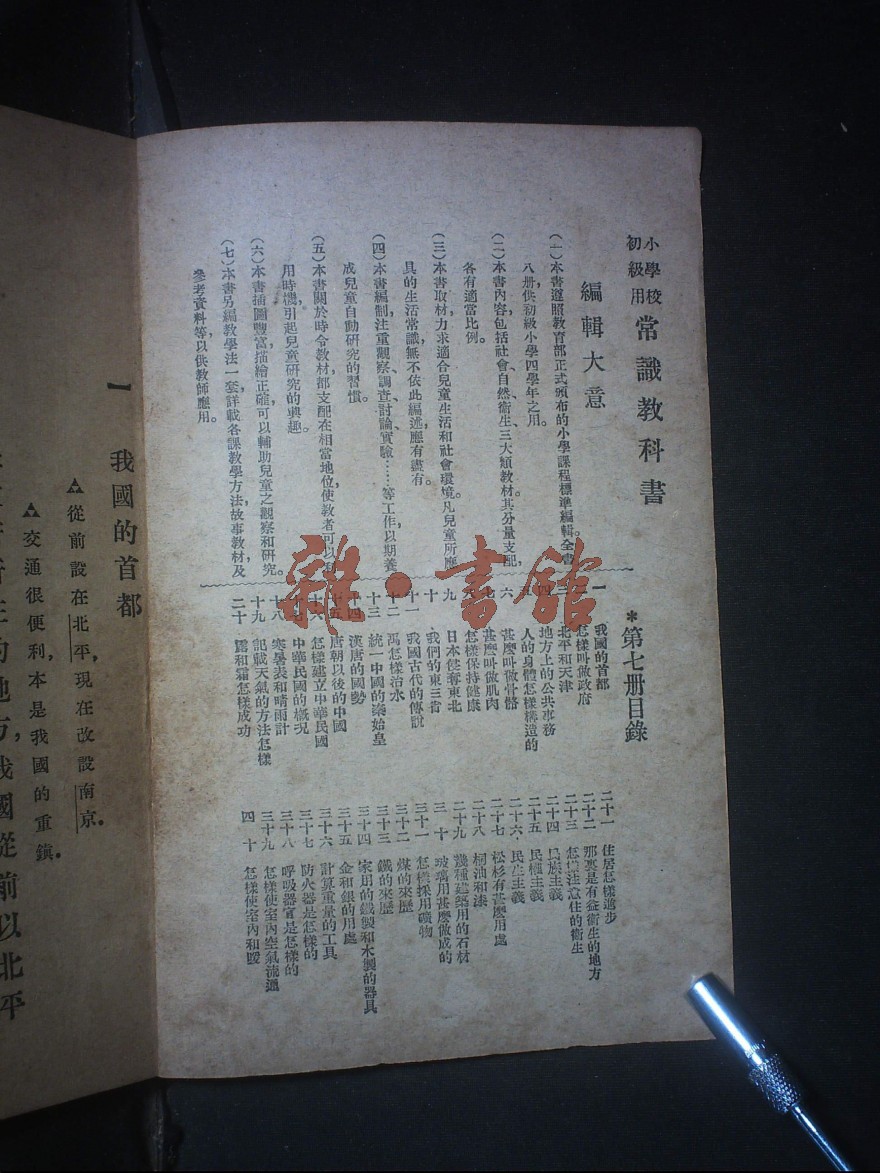 小學校
初級用
常識教科書
編輯大意
(一)本書遵照教育部正式頒布的小學課程標準編輯全書
八册,供初級小學四學年之用。
(二)本書內容,包括社會、自然、衞生三大類教材,其分量支配,
各有適當比例。
(三)本書取材,力求適合兒童生活和社會環境。凡兒童所應
具的生活常識,無不依此編述,應有盡有。
(四)本書編制,注重觀察、調查、討論、實驗……等工作,以期養
成兒童自動研究的習慣。
(五)本書關於時令教材,都支配在相當地位,使教者可以利
用時機,引起兒童研究的興趣。
(六)本書插圖豐富,描繪正確,可以輔助兒童之觀察和研究。
(七)本書另編教學法一套,詳載各課教學方法,故事教材,及
參考資料等,以供教師應用。
*第七册目錄
一 我國的首都
二 怎樣叫做政府
三 北平和天津
四 地方上的公共事務
五 人的身體怎樣構造的
六 甚麼叫做骨骼
七 甚麼叫做肌肉
八 怎樣保持健康
九 日本侵奪東北
十 我們的東三省
十一 我國古代的傳說
十二 禹怎樣治水
十三 統一中國的秦始皇
十四 漢唐的國勢
十五 唐朝以後的中國
十六 怎樣建立中華民國
十七 中華民國的概況
十八 寒暑表和晴雨計
十九 記載天氣的方法怎樣
二十 露和霜怎樣成功
二十一 住居怎樣進步
二十二 那裏是有益衞生的地方
二十三 怎樣注意住的衞生
二十四 民族主義
二十五 民權主義
二十六 民生主義
二十七 松杉有甚麼用處
二十八 桐油和漆
二十九 幾種建築用的石材
三十 玻璃用甚麼做成的
三十一 怎樣採用礦物
三十二 煤的來歷
三十三 鐵的來歷
三十四 家用的鐵製和木製的器具
三十五 金和銀的用處
三十六 計算重量的工具
三十七 防火器是怎樣的
三十八 呼吸器官是怎樣的
三十九 怎樣使室內空氣流通
四十 怎樣使室內和暖
一 我國的首都
▲從前設在北平,現在改設南京。
▲交通很便利,本是我國的重鎮。
地方,我國從前以北平
雜·書館